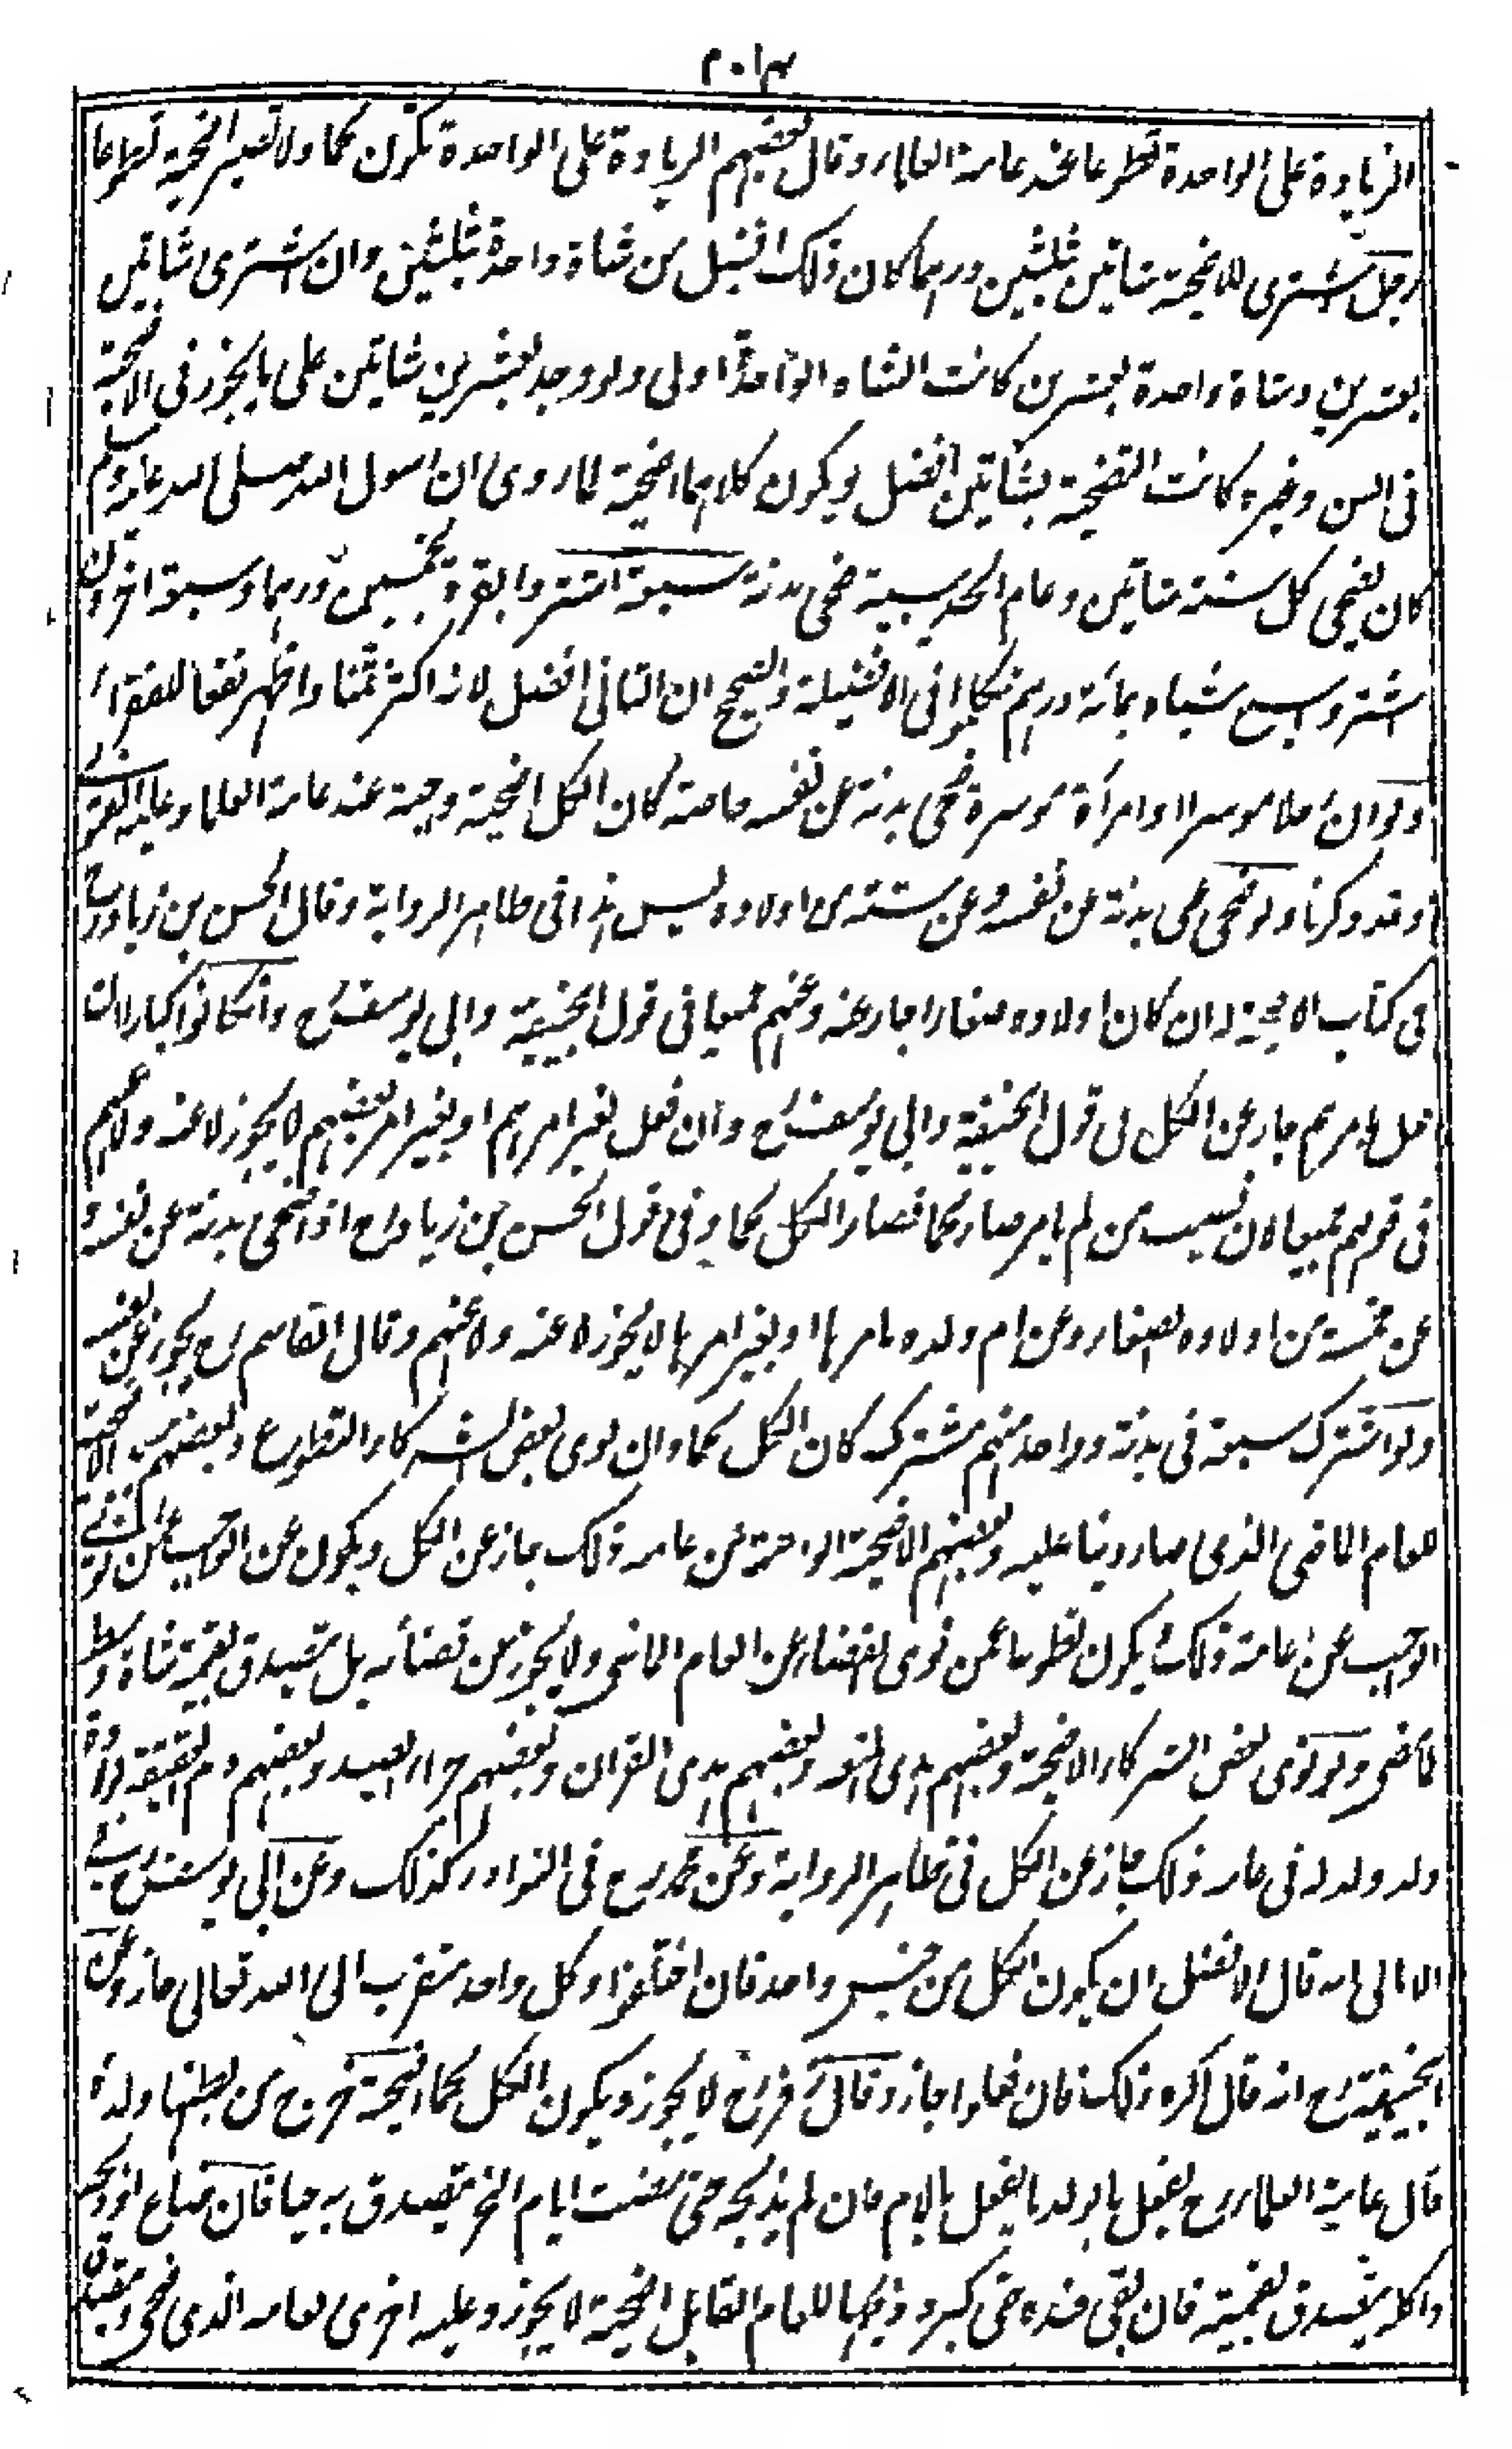 الزيادة على الواحدة تطوعا عند عامة العلماء وقال بعضهم الزيادة على الواحدة تكون لحما ولا تصير اضحية تطوعا
رجل اشترى للاضحية شاتين بثلثين درهما كان ذلك افضل من شاة واحدة بثلثين وان اشترى شاتين
بعشرين وشاة واحدة بعشرين كانت الشاه الواحدة اولى ولو وجد بعشرين شاتين على ما يجوز فى الاضحية
فى السن وغيره كانت التضحية بشاتين افضل ويكون كلاهما اضحية لما روى ان رسول الله صلى الله عليه وسلم
كان يضحى كل سنة شاتين وعام الحديبية ضحى بدنة سبعة اشتروا بقرة بخمسين درهما وسبعة اخرون
اشتروا سبع شياه بمائة درهم تكلموا فى الافضيلة والصحيح ان الثانى افضل لانه اكثر ثمنا واظهر نفعا للفقراء
ولو ان رجلا موسرا او امرأة موسرة ضحى بدنة عن نفسه خاصة كان الكل اضحية وجبة عند عامة العلما وعليه الفتوى
وقد ذكرنا ولو ضحى بدنة عن نفسه وعن ستة من اولاده ليس هذا فى ظاهر الرواية وقال الحسن بن زياد رح
فى كتاب الاضحية له ان كان اولاده صغارا جاز عنه وعنهم جميعا فى قول ابيحنيفة وابى يوسف رح وانكانوا كبارا ان
فعل بامرهم جاز عن الكل فى قول ابيحنيفة وابى يوسف رح وان فعل بغير امرهم او بغير امر بعضهم لا يجوز لا عنه ولا عنهم
فى قولهم جميعا لان نصيب من لم يامر صار لحما فصار الكل لحما وفى قول الحسن بن زياد رح اذا ضحى بدنة عن نفسه و
عن خمسة من اولاده الصغار وعن ام ولده بامرها او بغير امرها لا يجوز لا عنه ولا عنهم وقال ابو القاسم رح يجوز عن نفسه
ولو اشترك سبعة فى بدنة وواحد منهم مشرك كان الكل لحما وان نوى بعض الشركاء التطوع وبعضهم الاضحية
للعام الماضى الذى صار دينا عليه وبعضهم الاضحية الواجبة عن عامه ذلك جاز عن الكل ويكون عن الواجب عمن نوى
الواجب عن عامة ذلك ويكون تطوعا عمن نوى القضاء عن العام الماضى ولا يجوز عن قضائه بل يتصدق بقيمة شاة وسط
لما مضى ولو نوى بعض الشركاء الاضحية وبعضهم هدى المتعة وبعضهم هدى القران وبعضهم جزاء الصيد وبعضهم دم العقيقة لولادة
ولد ولد له فى عامه ذلك جاز عن الكل فى ظاهر الرواية وعن محمد رح فى النوادر كذلك وعن ابى يوسف رح فى
الامالى انه قال الافضل ان يكون الكل من جنس واحد فان اختلفوا وكل واحد متقرب الى الله تعالى جاز وعن
ابيحنيفة رح انه قال اكره ذلك فان فعلوا جاز وقال زفر رح لا يجوز ويكون الكل لحما اضحية خرج من بطنها ولد
قال عامة العلماء رح يفعل بالولد ما يفعل بالام فان لم يذبحه حتى مضت ايام النحر يتصدق به حيا فان ضاع او ذبحه
واكله يتصدق بقيمته فان بقى عنده حتى كبر وذبحها للعام القابل اضحية لا يجوز وعليه اخرى لعامه الذى ضحى